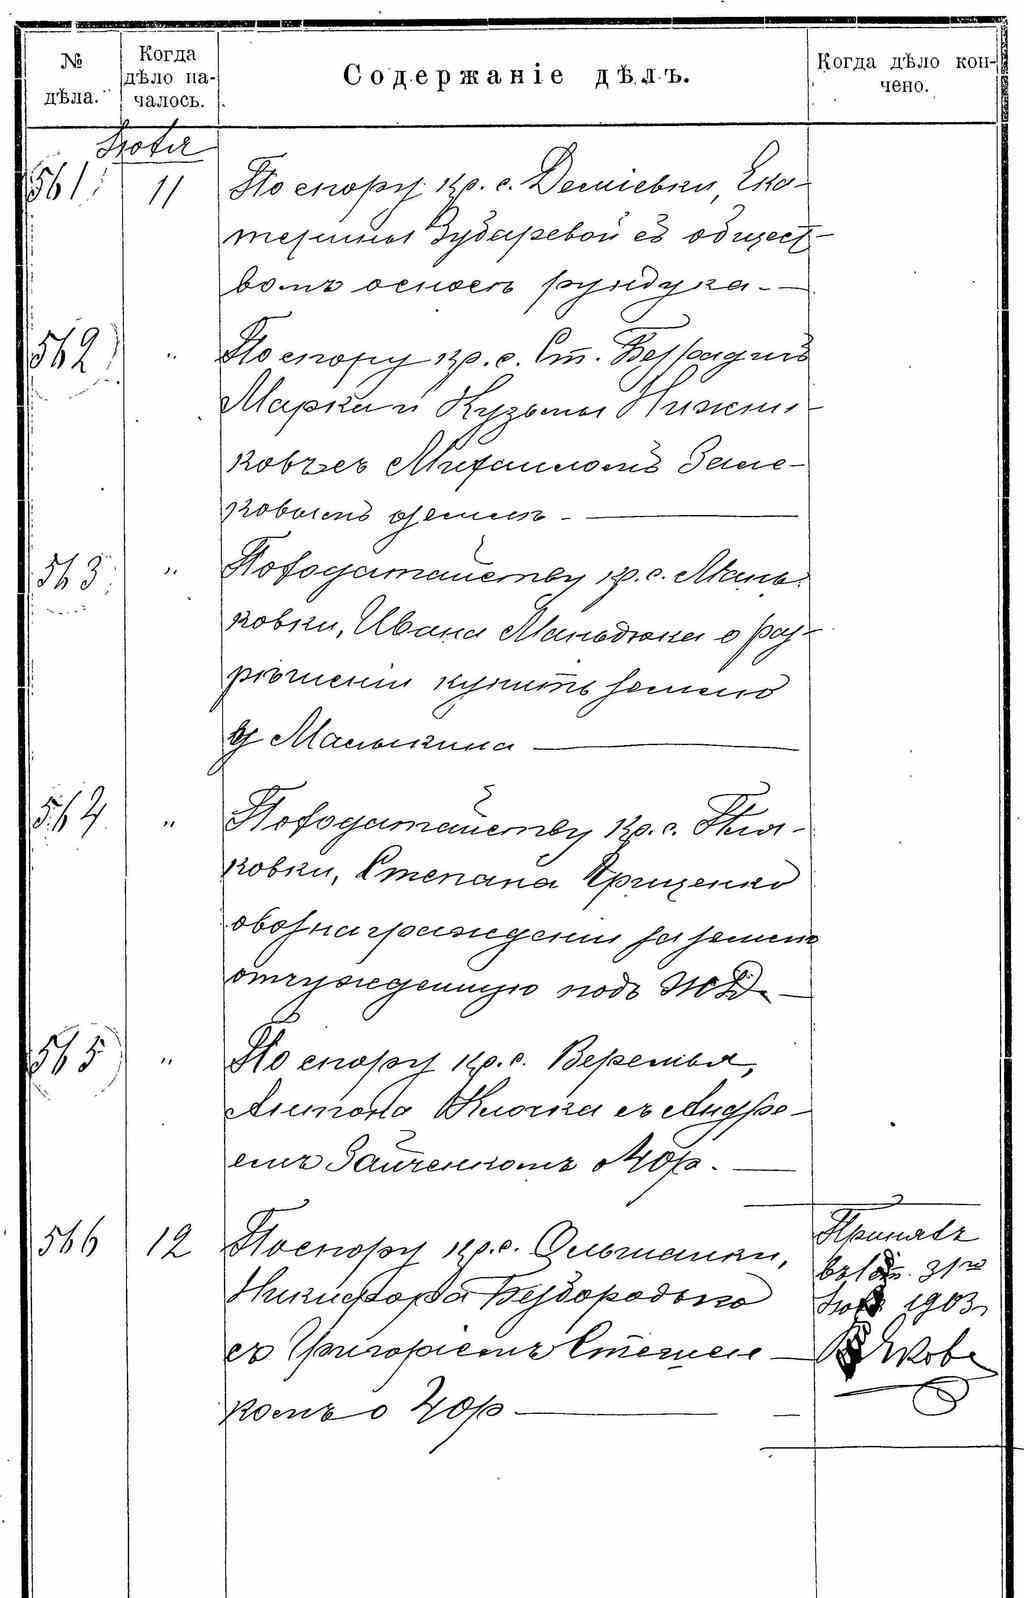 № дѣла.
Когда дѣло на-
чалось.
Содержаніе дѣлъ.
Когда дѣло кон-
чено.
Іюля
561 11 По спору кр. с. Деміевки, Ека-
терины Зубаревой съ общест-
вомъ о сносѣ рундука. —
562 " По спору кр. с. Ст. Безрадичъ
Марка и Кузьмы Нижни-
ковъ съ Михаиломъ
ковымъ о землѣ. —
563 " По ходатайству кр. с. Мань-
ковки, Ивана Маньдюка о раз-
рѣшеніи купить землю
у Малыкина —
564 " По ходатайству кр. с. Пля-
ковки, Степана Грищенко
о вознагражденіи за землю
отчужденную подъ ЖД. —
565 " По спору кр. с. Веремья,
Антона Клочка съ Андре-
емъ Зайченкомъ о 40р. —
566 12 По спору кр. с. Ольшанки,
Никифора Безбородько
съ Григоріемъ Стецен-
комъ о 40р —
Принялъ
31го
1903г